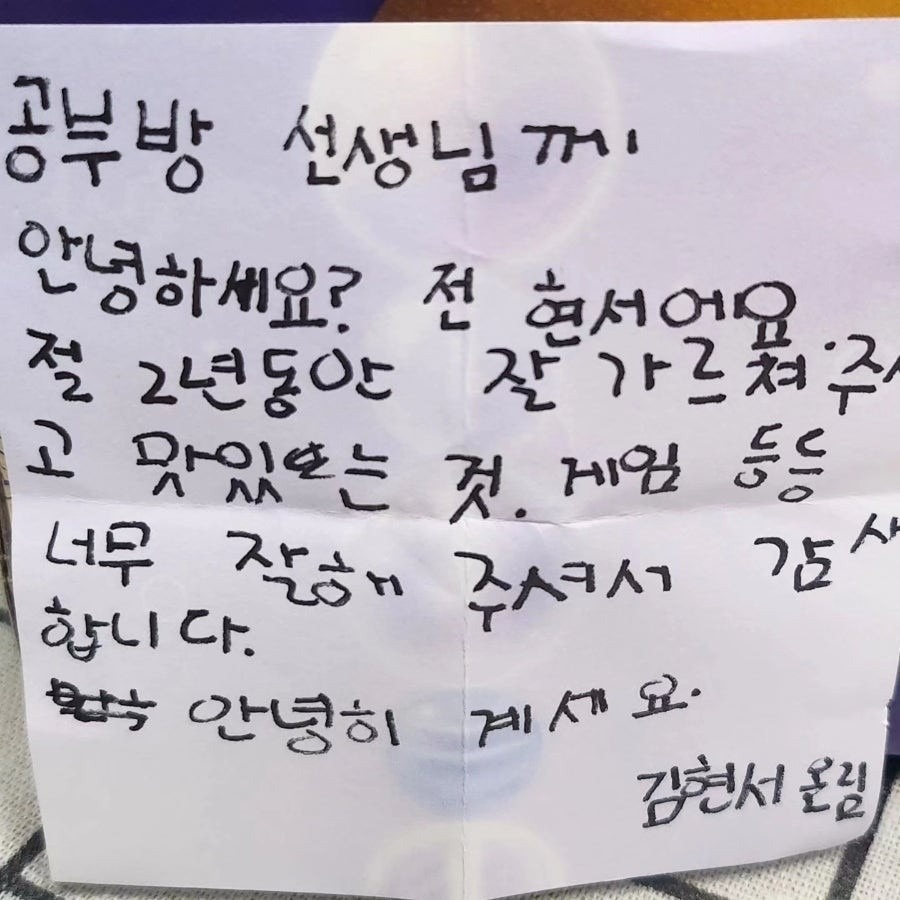 공부방 선생님께
안녕하세요? 전 현서어요.
절 2년동안 잘 가르쳐 주시
고 맛있는 것, 게임 등등
너무 잘해 주셔서 감사
합니다.
안녕히 계세요.
김현서 올림